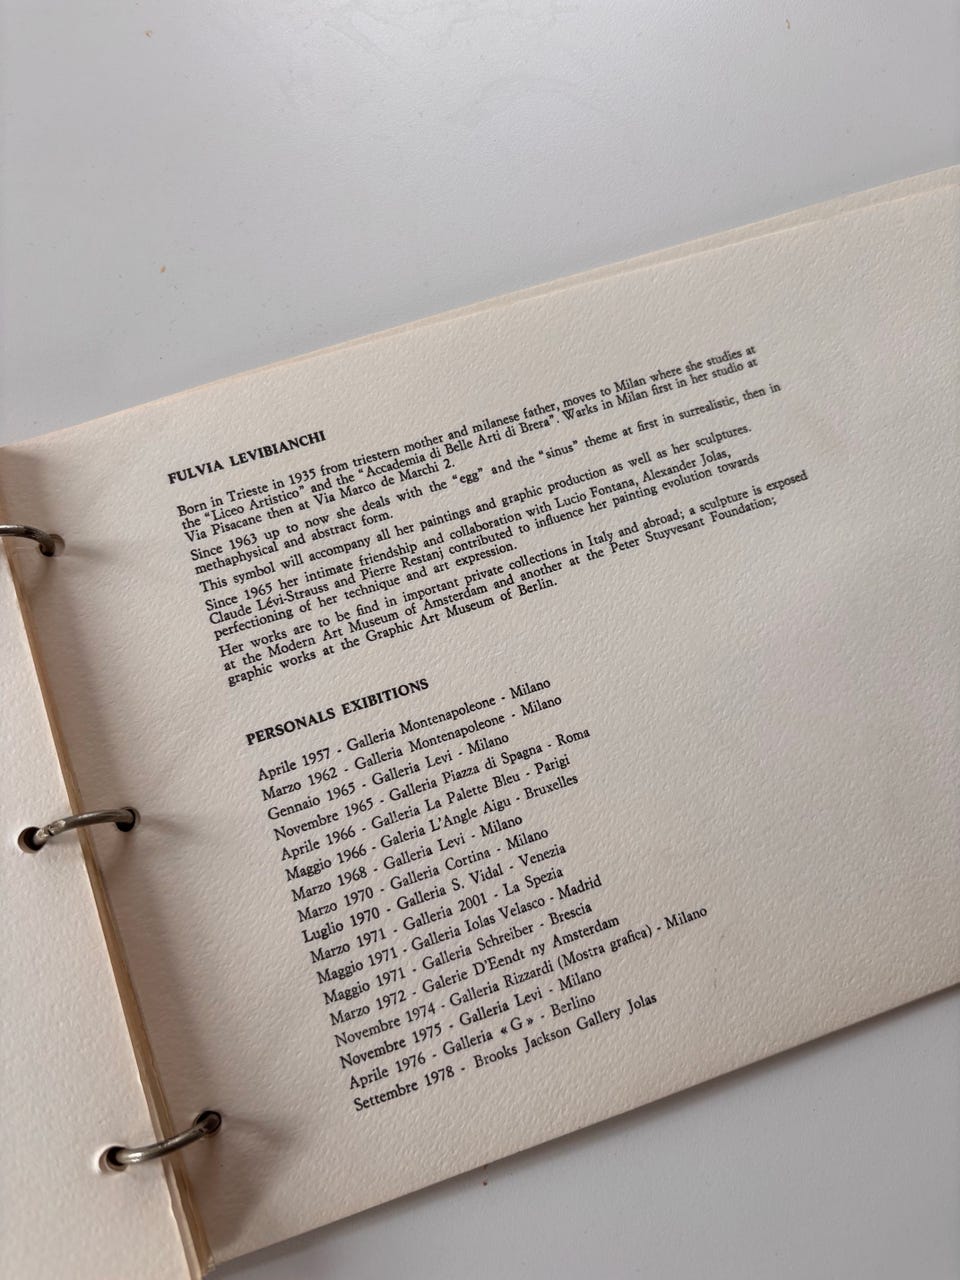 FULVIA LEVIBIANCHI
Born in Trieste in 1935 from triestern mother and milanese father, moves to Milan where she studies at
the "Liceo Artistico" and the "Accademia di Belle Arti di Brera". Warks in Milan first in her studio at
Via Pisacane then at Via Marco de Marchi 2.
Since 1963 up to now she deals with the "egg" and the "sinus" theme at first in surrealistic, then in
methaphysical and abstract form.
This symbol will accompany all her paintings and graphic production as well as her sculptures.
Since 1965 her intimate friendship and collaboration with Lucio Fontana, Alexander Jolas,
Claude Lévi-Strauss and Pierre Restanj contributed to influence her painting evolution towards
perfectioning of her technique and art expression.
Her works are to be find in important private collections in Italy and abroad; a sculpture is exposed
at the Modern Art Museum of Amsterdam and another at the Peter Stuyvesant Foundation;
graphic works at the Graphic Art Museum of Berlin.
PERSONALS EXIBITIONS
Aprile 1957 - Galleria Montenapoleone - Milano
Marzo 1962 - Galleria Montenapoleone - Milano
Gennaio 1965 - Galleria Levi - Milano
Novembre 1965 - Galleria Piazza di Spagna - Roma
Aprile 1966 - Galleria La Palette Bleu - Parigi
Maggio 1966 - Galeria L'Angle Aigu - Bruxelles
Marzo 1968 - Galleria Levi - Milano
Marzo 1970 - Galleria Cortina - Milano
Luglio 1970 - Galleria S. Vidal - Venezia
Marzo 1971 - Galleria 2001 - La Spezia
Maggio 1971 - Galleria Iolas Velasco - Madrid
Maggio 1971 - Galleria Schreiber - Brescia
Marzo 1972 - Galerie D'Eendt ny Amsterdam
Novembre 1974 - Galleria Rizzardi (Mostra grafica) - Milano
Novembre 1975 - Galleria Levi - Milano
Aprile 1976 - Galleria « G » - Berlino
Settembre 1978 - Brooks Jackson Gallery Jolas